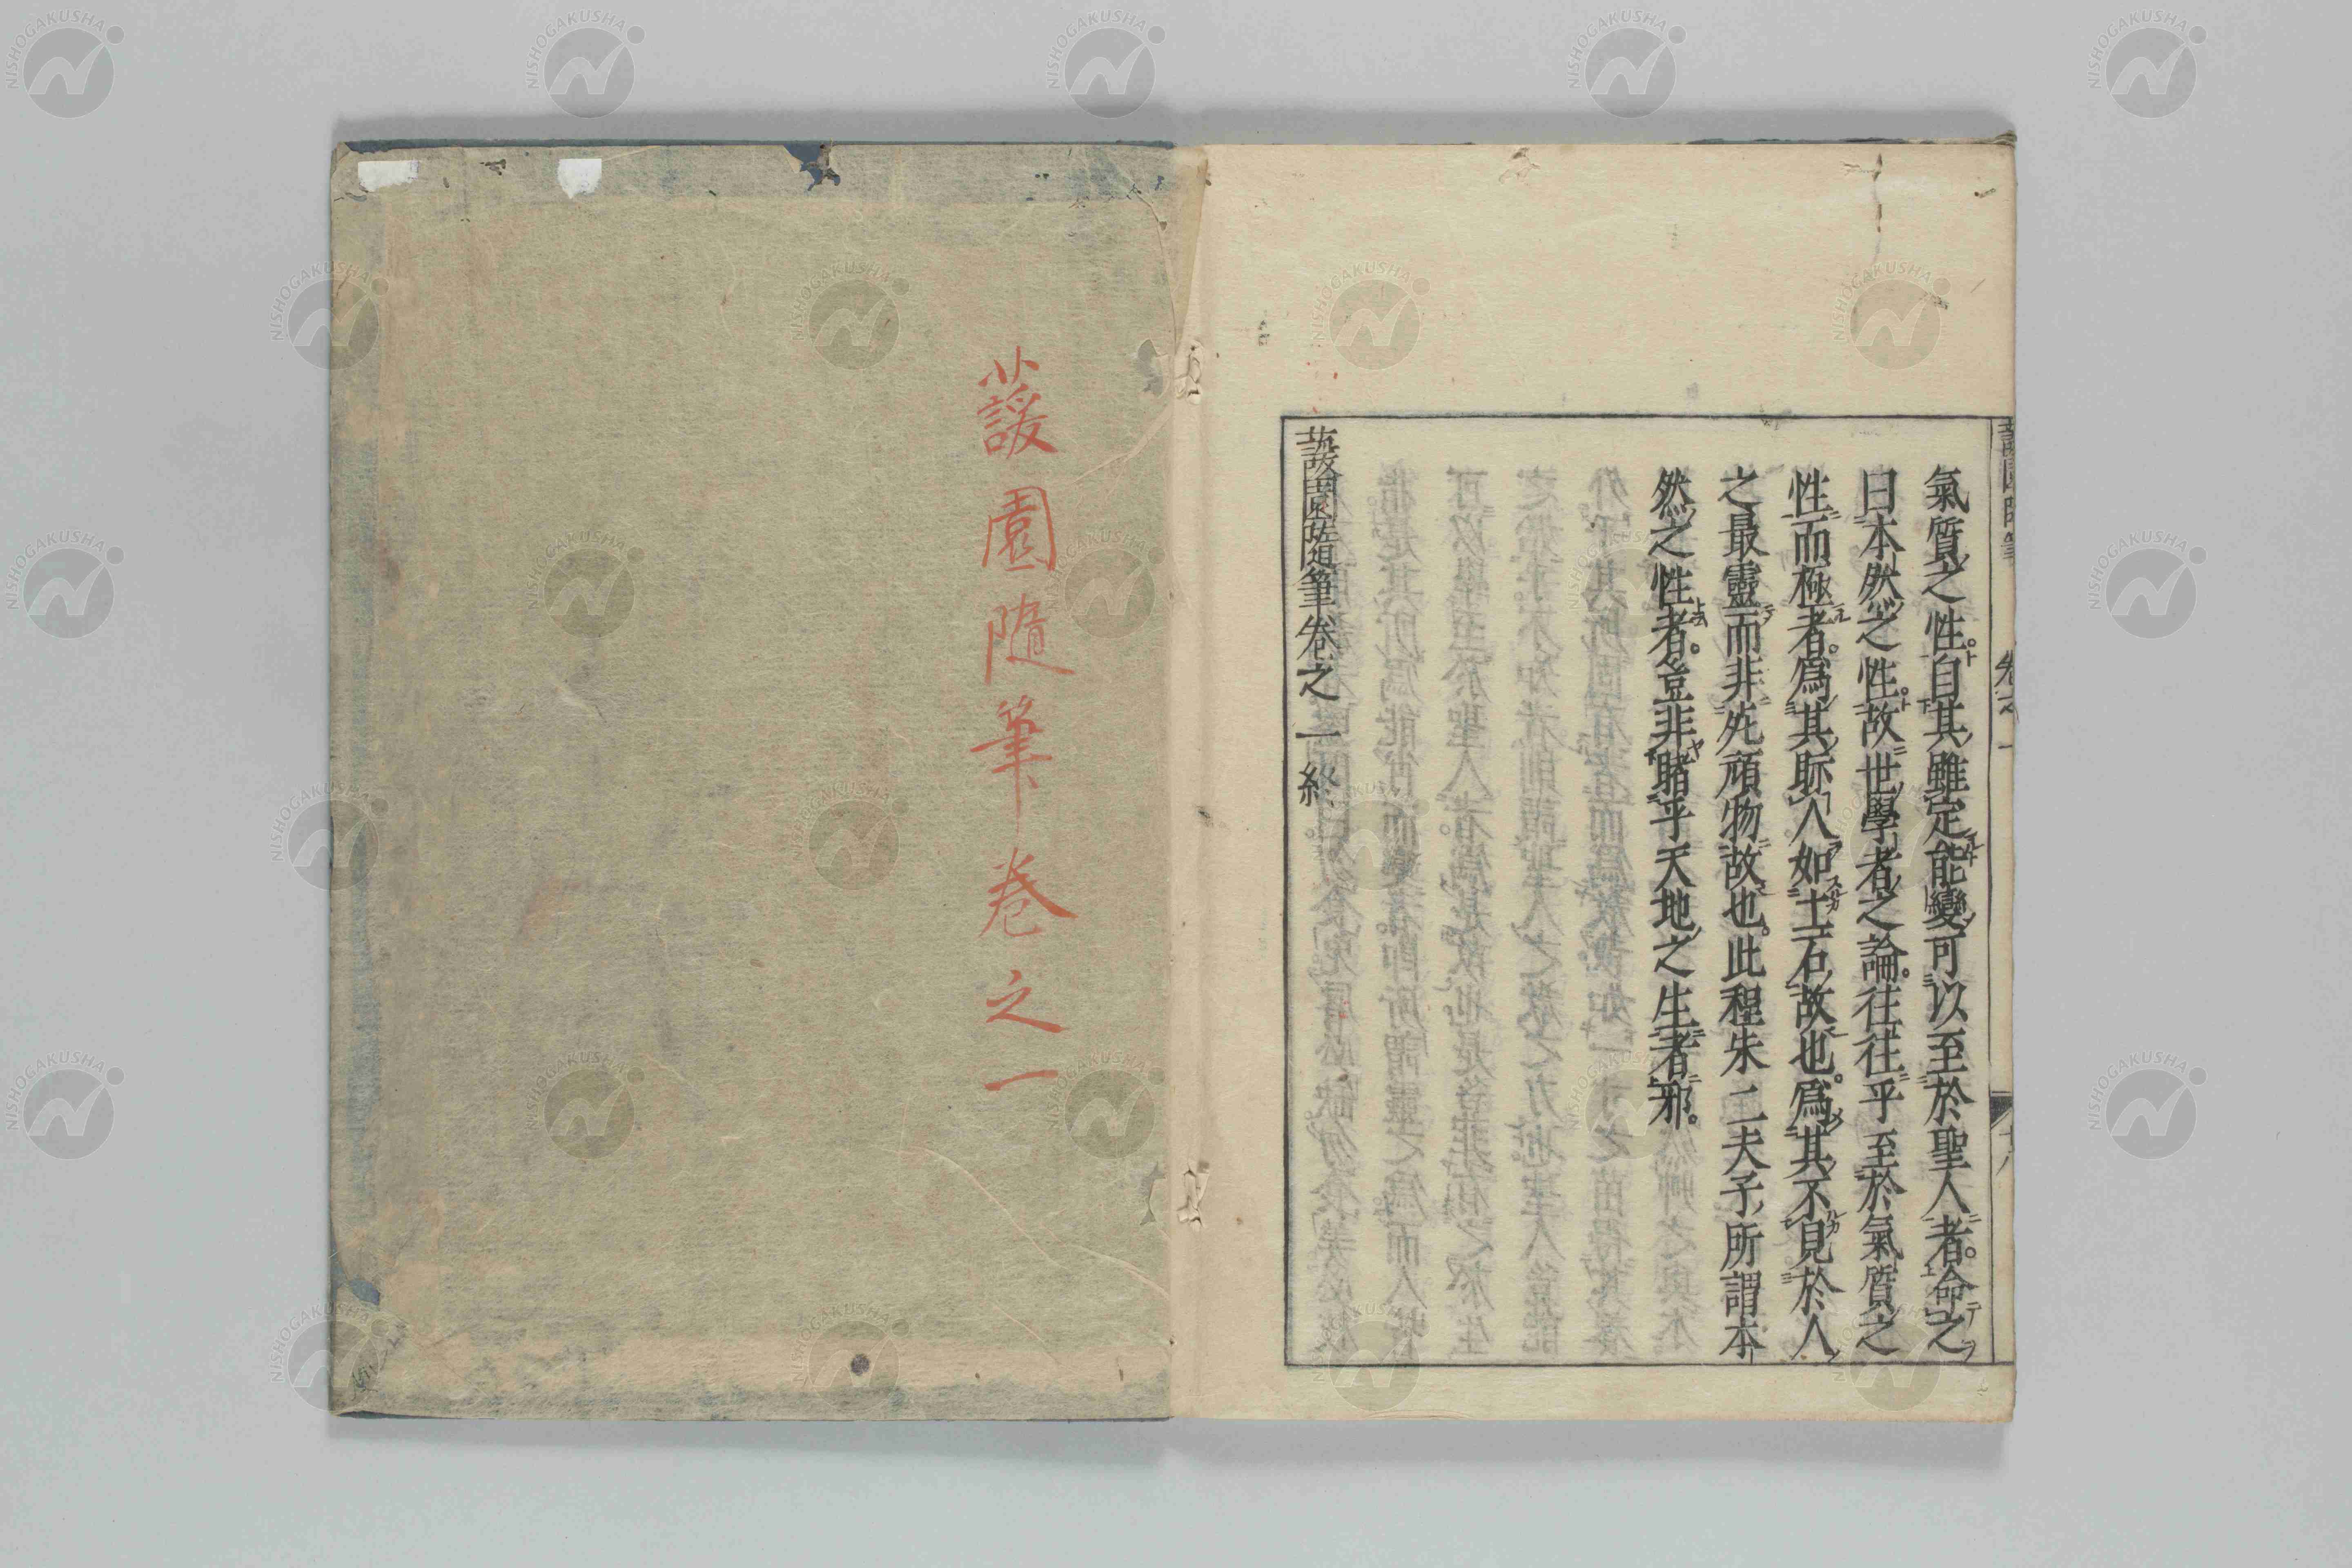 氣質之性。自其雖定能變可以至於聖人者。命之
曰本然之性。故世學者之論。往往乎至於氣質之
性而極者。爲其眎人如土石故也。爲其不見於人
之最靈而非死頑物故也。此程朱二夫子所謂本
然之性者。豈非睹乎天地之生者邪。
蘐園隨筆卷之一終
蘐園隨筆卷之一
卷之一
十八
NISHOGAKUSHA